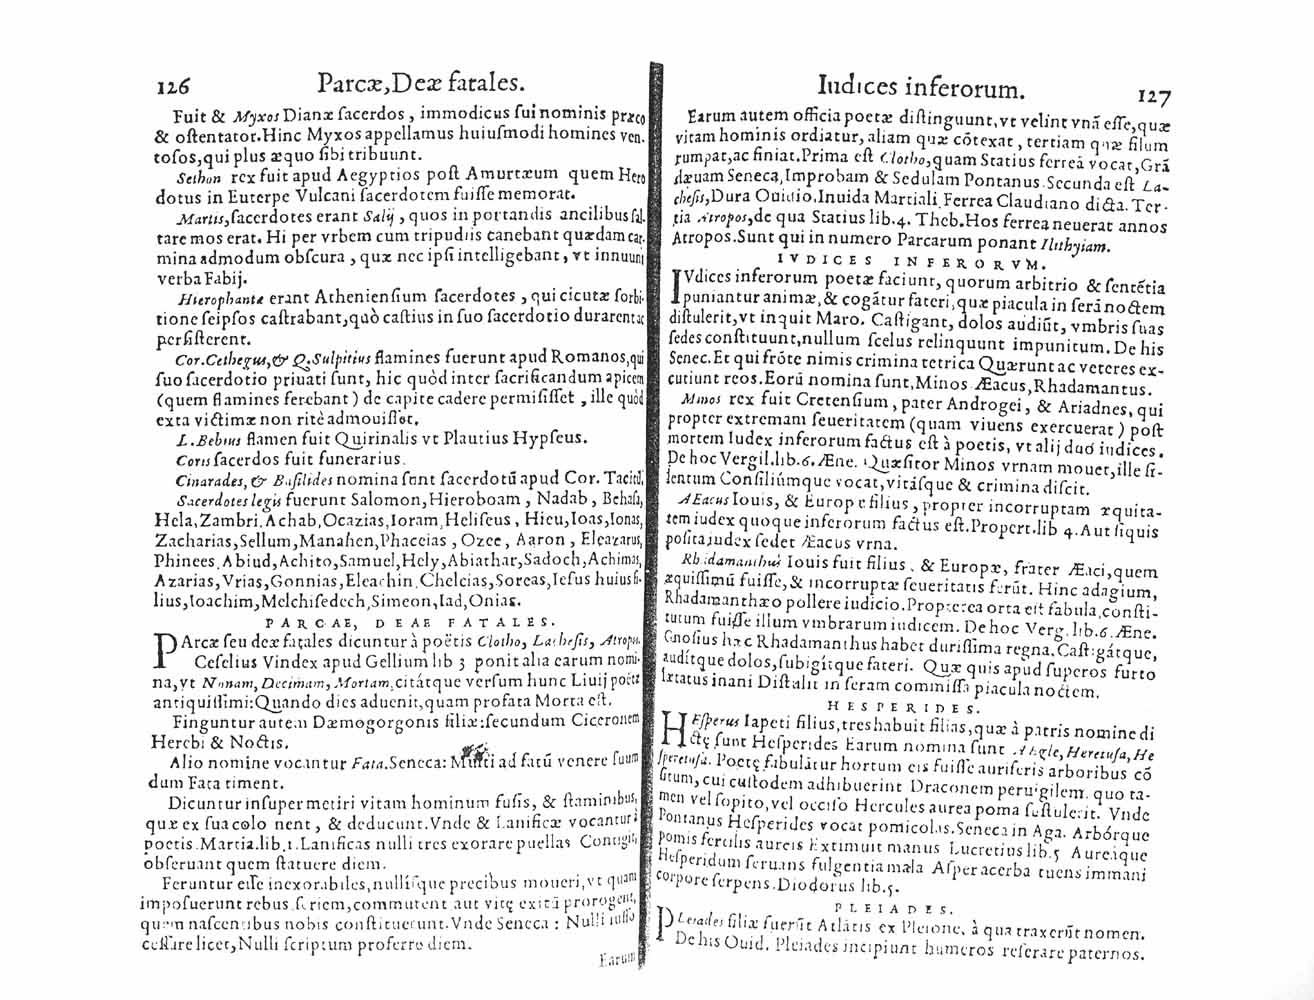 126 Parcæ, Deæ fatales.
Fuit & Myxos Dianæ sacerdos, immodicus sui nominis præco
& ostentator. Hinc Myxos appellamus huiusmodi homines ven
tosos, qui plus æquo sibi tribuunt.
Sethon rex fuit apud Aegyptios post Amurtæum quem Hero
dotus in Euterpe Vulcani sacerdotem fuisse memorat.
Martis, sacerdotes erant Salij, quos in portandis ancilibus sal-
tare mos erat. Hi per vrbem cum tripudiis canebant quædam car-
mina admodum obscura, quæ nec ipsi intelligebant, vt innuunt
verba Fabij.
Hierophantæ erant Atheniensium sacerdotes, qui cicutæ sorbi-
tione seipsos castrabant, quò castius in suo sacerdotio durarent ac
persisterent.
Cor. Cethegus, & Q. Sulpitius flamines fuerunt apud Romanos, qui
suo sacerdotio priuati sunt, hic quòd inter sacrificandum apicem
(quem flamines ferebant) de capite cadere permisisset, ille quòd
exta victimæ non ritè admouisset.
L. Bebius flamen fuit Quirinalis vt Plautius Hypseus.
Coris sacerdos fuit funerarius.
Cinarades, & Basilides nomina sunt sacerdotū apud Cor. Tacitū,
Sacerdotes legis fuerunt Salomon, Hieroboam, Nadab, Behasa,
Hela, Zambri, Achab, Ocazias, Ioram, Heliseus, Hieu, Ioas, Ionas,
Zacharias, Sellum, Manahen, Phaceias, Ozee, Aaron, Eleazarus,
Phinees, Abiud, Achito, Samuel, Hely, Abiathar, Sadoch, Achimas,
Azarias, Vrias, Gonnias, Eleachin, Chelcias, Soreas, Iesus huius fi-
lius, Ioachim, Melchisedech, Simeon, Iad, Onias.
PARCAE, DEAE FATALES.
PArcæ seu deæ fatales dicuntur à poëtis Clotho, Lachesis, Atropu.
Ceselius Vindex apud Gellium lib 3 ponit alia earum nomi-
na, vt Nonam, Decimam, Mortam, citátque versum hunc Liuij poëtæ
antiquissimi: Quando dies adueniet, quam profata Morta est.
Finguntur autem Dæmogorgonis filiæ: secundum Ciceronem
Herebi & Noctis.
Alio nomine vocantur Fata. Seneca: Multi ad fatū venere suum
dum Fata timent.
Dicuntur insuper metiri vitam hominum fusis, & staminibus,
quæ ex sua colo nent, & deducunt. Vnde & Lanificæ vocantur à
poetis. Martia. lib. 1. Lanificas nulli tres exorare puellas Contigit,
obseruant quem statuere diem.
Feruntur esse inexorabiles, nullísque precibus moueri, vt quam
imposuerunt rebus seriem, commutent aut vitę exitū prorogent,
quem nascentibus nobis constituerunt. Vnde Seneca: Nulli iusso
cessare licet, Nulli scriptum proferre diem.
Earum
Iudices inferorum. 127
Earum autem officia poetæ distinguunt, vt velint vnā esse, quæ
vitam hominis ordiatur, aliam quæ cōtexat, tertiam quæ filum
rumpat, ac finiat. Prima est Clotho, quam Statius ferreā vocat, Grā
dæuam Seneca, Improbam & Sedulam Pontanus. Secunda est La-
chesis, Dura Ouidio, Inuida Martiali, Ferrea Claudiano dicta. Ter-
tia Atropos, de qua Statius lib. 4. Theb. Hos ferrea neuerat annos
Atropos. Sunt qui in numero Parcarum ponant Ilithyiam.
IVDICES INFERORVM.
IVdices inferorum poetæ faciunt, quorum arbitrio & sentētia
puniantur animæ, & cogātur fateri, quæ piacula in serā noctem
distulerit, vt inquit Maro. Castigant, dolos audiūt, vmbris suas
sedes constituunt, nullum scelus relinquunt impunitum. De his
Senec. Et qui frōte nimis crimina tetrica Quærunt ac veteres ex-
cutiunt reos. Eorū nomina sunt, Minos Æacus, Rhadamantus.
Minos rex fuit Cretensium, pater Androgei, & Ariadnes, qui
propter extremam seueritatem (quam viuens exercuerat) post
mortem Iudex inferorum factus est à poetis, vt alij duo iudices.
De hoc Vergil. lib. 6. Æne. Quæsitor Minos vrnam mouet, ille si-
lentum Consiliúmque vocat, vitásque & crimina discit.
AEacus Iouis, & Europe filius, propter incorruptam æquita-
tem iudex quoque inferorum factus est. Propert. lib 4. Aut siquis
posita iudex sedet Æacus vrna.
Rhadamanthus Iouis fuit filius, & Europæ, frater Æaci, quem
æquissimū fuisse, & incorruptæ seueritatis ferūt. Hinc adagium,
Rhadamanthæo pollere iudicio. Propterea orta est fabula, consti-
tutum fuisse illum vmbrarum iudicem. De hoc Verg. lib. 6. Æne.
Gnosius hæc Rhadamanthus habet durissima regna. Castigátque,
audítque dolos, subigítque fateri. Quæ quis apud superos furto
lætatus inani Distulit in seram commissa piacula noctem.
HESPERIDES.
HEsperus Iapeti filius, tres habuit filias, quæ à patris nomine di
ctę sunt Hesperides Earum nomina sunt Aegle, Heretusa, He
speretusa. Poetę fabulātur hortum eis fuisse auriferis arboribus cō
situm, cui custodem adhibuerint Draconem peruigilem, quo ta-
men vel sopito, vel occiso Hercules aurea poma sustulerit. Vnde
Pontanus Hesperides vocat pomicolas. Seneca in Aga. Arbórque
pomis fertilis aureis Extimuit manus Lucretius lib. 5 Aureáque
Hesperidum seruans fulgentia mala Asper acerba tuens immani
corpore serpens. Diodorus lib. 5.
PLEIADES.
PLeiades filiæ fuerūt Atlātis ex Pleione, à qua traxerūt nomen.
De his Ouid. Pleiades incipiunt humeros referare paternos.